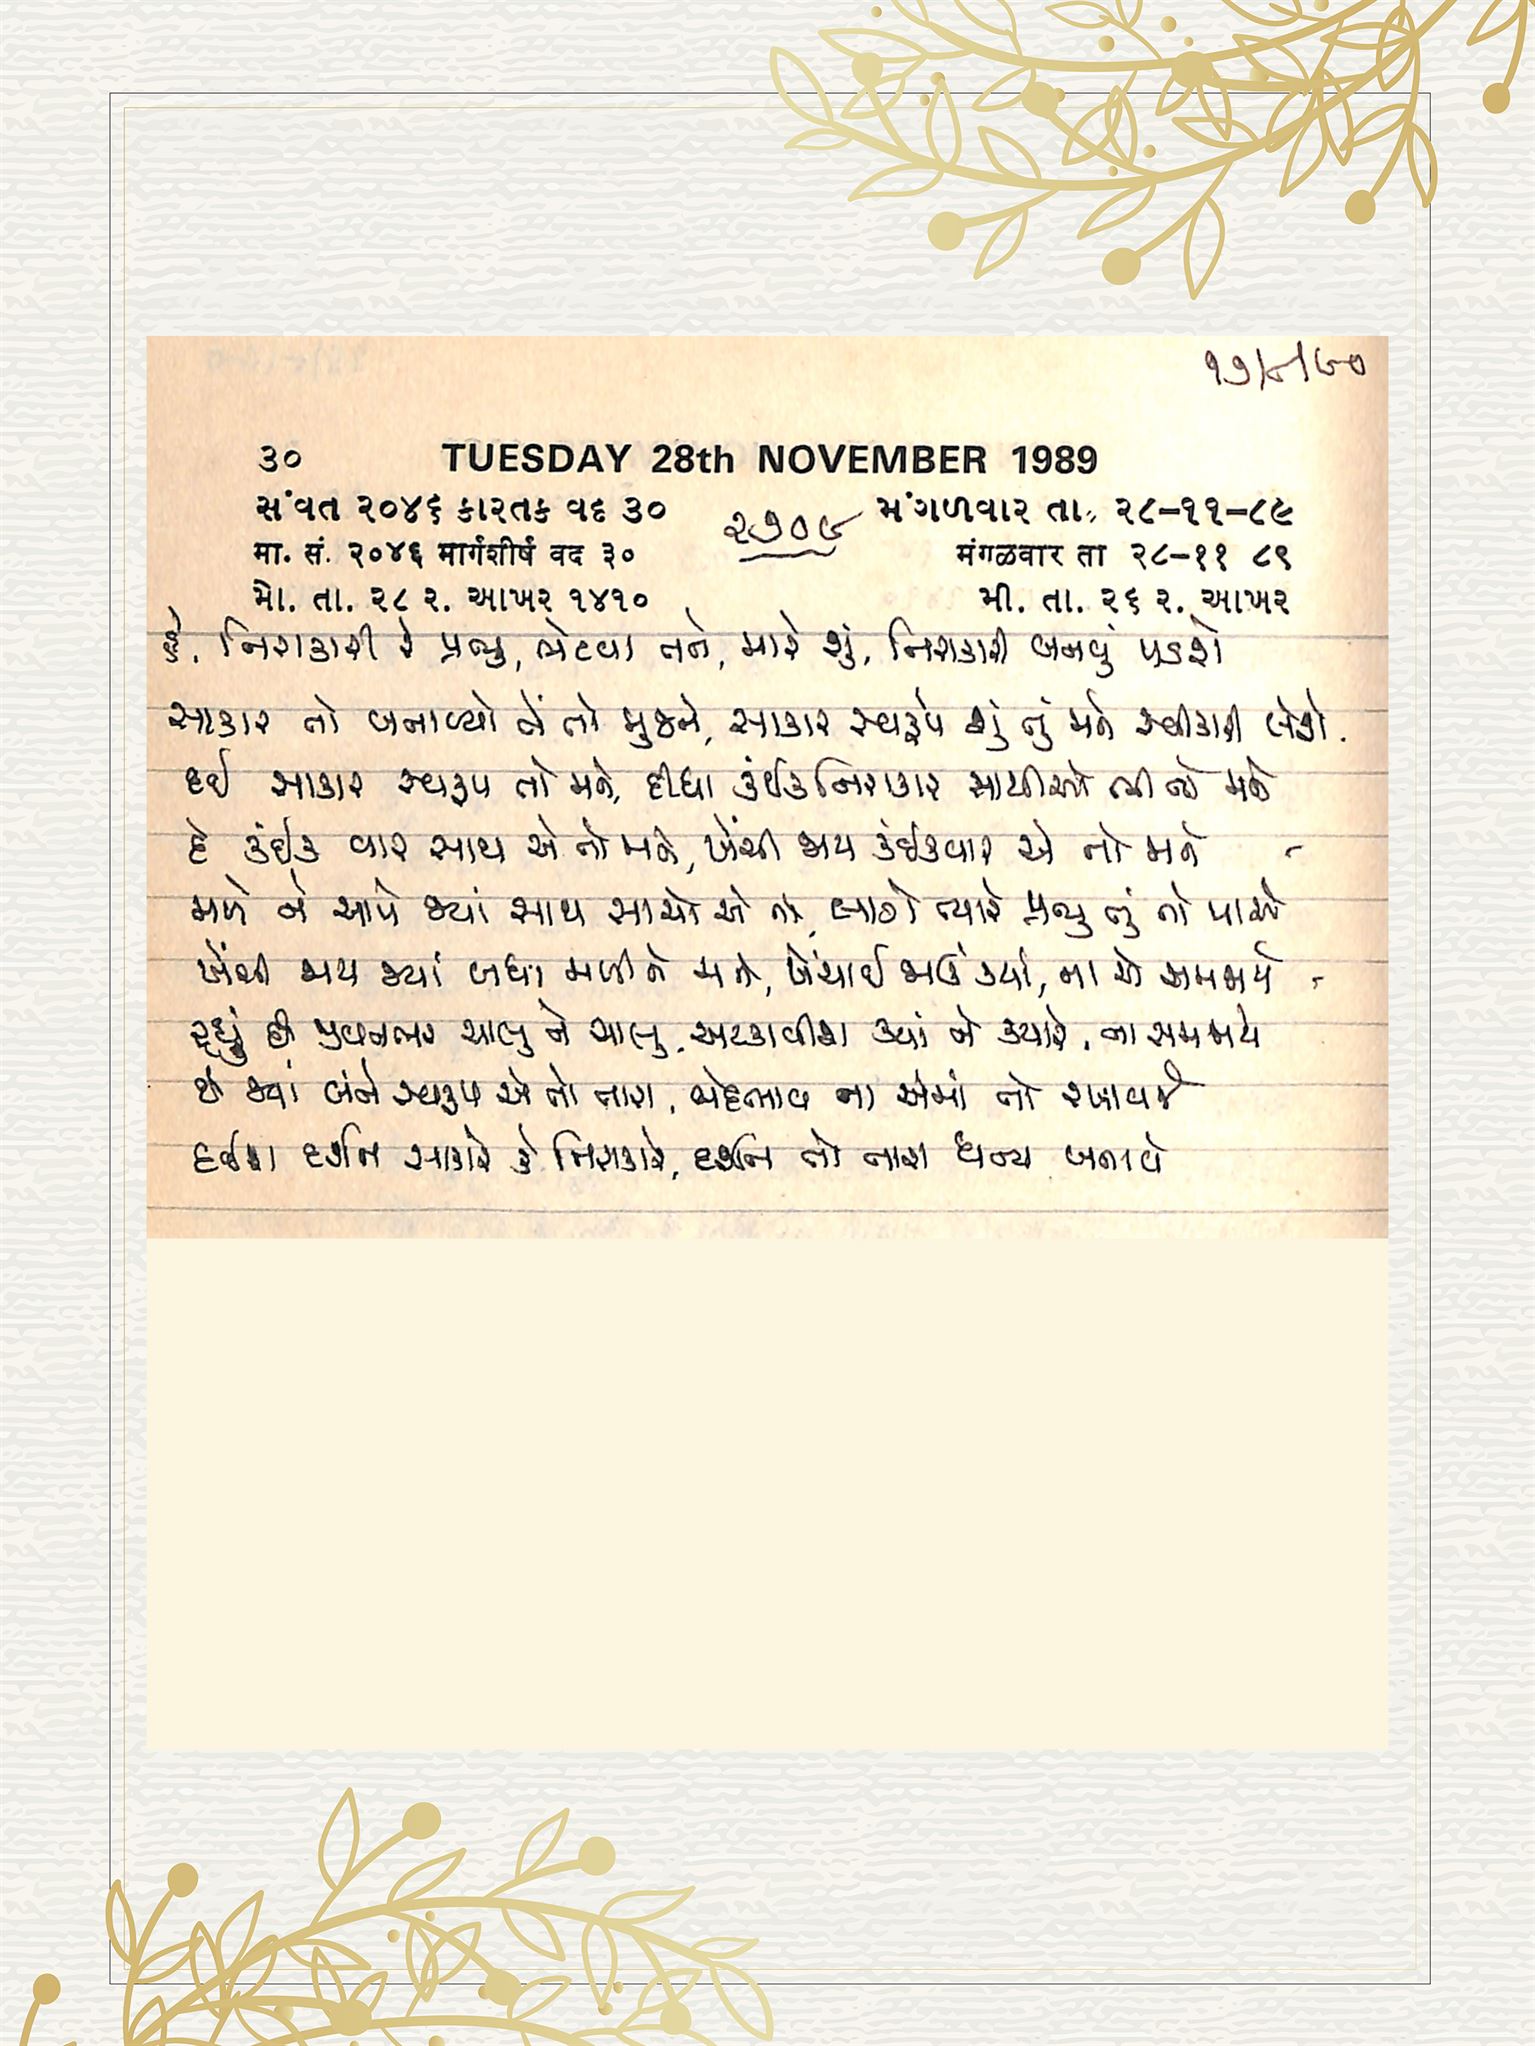 ૧૭/૮/૯૦
૩૦ TUESDAY 28th NOVEMBER 1989
સંવત ૨૦૪૬ કારતક વદ ૩૦ ૨૭૦૯ મંગળવાર તા. ૨૮-૧૧-૮૯
मा. सं. २०४६ मार्गशीर्ष वद ३० मंगळवार ता २८-११ ८९
મો. તા. ૨૮ ૨. આખર ૧૪૧૦ મી. તા. ૨૬ ૨. આખર
હે, નિરાકારી રે પ્રભુ, ભેટવા તને, મારે શું, નિરાકારી બનવું પડશે
સાકાર તો બનાવ્યો તેં તો મુજને, સાકાર સ્વરૂપે શું તું મને સ્વીકારી લેશે.
દઈ સાકાર સ્વરૂપ તો મને, દીધા કંઈક નિરાકાર સાથીઓ બીજે મને
દે કંઈક વાર સાથ એ તો મને, ખેંચી જાય કંઈકવાર એ તો મને -
મળે ને આપે જ્યાં સાથ સાચો એ તો, લાગે ત્યારે પ્રભુ તું તો પાસે
ખેંચી જાય જ્યાં બધા મળીને મને, ખેંચાઈ જાઉં ક્યાં, ના એ સમજાયે -
રહ્યું છે જીવનભર ચાલુ ને ચાલુ. અટકાવીશ ક્યાં ને ક્યારે, ના સમજાયે
છે જ્યાં બંને સ્વરૂપ એ તો તારા, ભેદભાવ ના એમાં તો રખાવજે
દર્શન સાકારે કે નિરાકારે, દર્શન તો તારા ધન્ય બનાવે